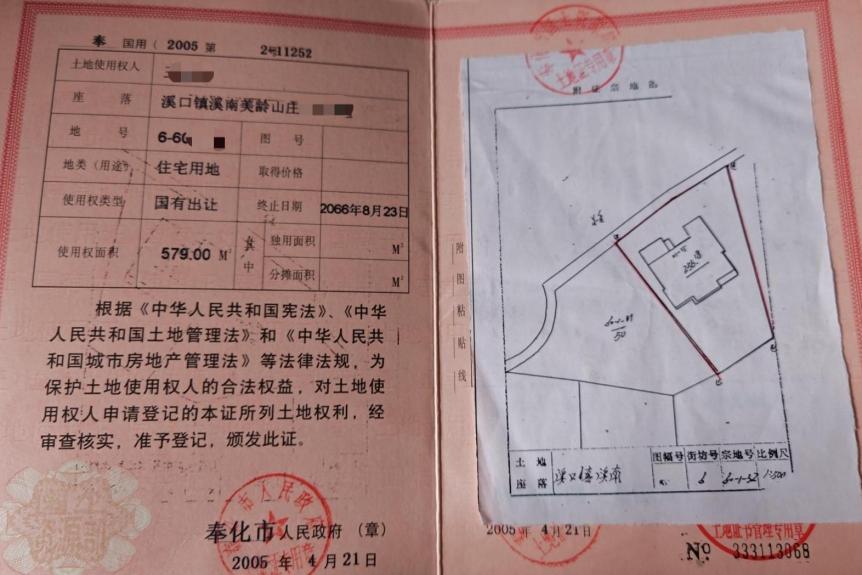 奉 国用（2005 第 2号11252
土地使用权人
座 落 溪口镇溪南美龄山庄
地 号 6-60 图 号
地类（用途） 住宅用地 取得价格
使用权类型 国有出让 终止日期 2066年8月23日
使用权面积 579.00 M² 其中 独用面积 M²
分摊面积 M²
根据《中华人民共和国宪法》、《中华
人民共和国土地管理法》和《中华人民共
和国城市房地产管理法》等法律法规，为
保护土地使用权人的合法权益，对土地使
用权人申请登记的本证所列土地权利，经
审查核实，准予登记，颁发此证。
奉化市人民政府（章）
2005 年 4 月 21 日
附图粘贴线
土地证专用章
土地座落 溪口镇溪南 图幅号 街坊号 6 宗地号 比例尺 1:500
2005年 4月21日
土地证书管理专用章
Nº 333113068